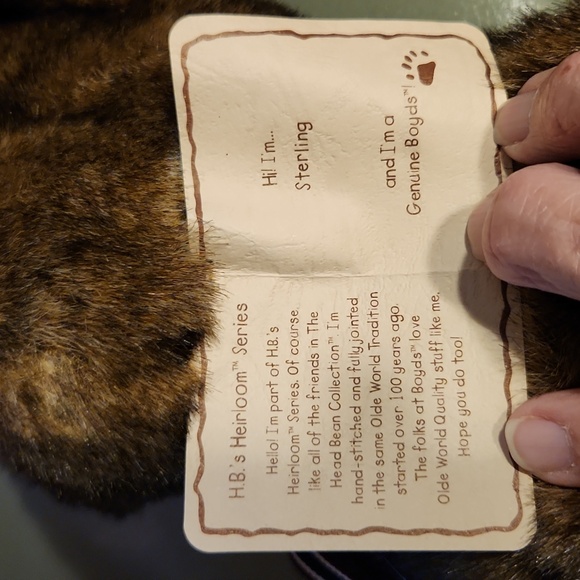 H.B.'s Heirloom™ Series
Hello! I'm part of H.B.'s
Heirloom™ Series. Of course,
like all of the friends in The
Head Bean Collection™ I'm
hand-stitched and fully jointed
in the same Olde World Tradition
started over 100 years ago.
The folks at Boyds™ love
Olde World Quality stuff like me.
Hope you do too!
Hi! I'm...
Sterling
and I'm a
Genuine Boyds™!